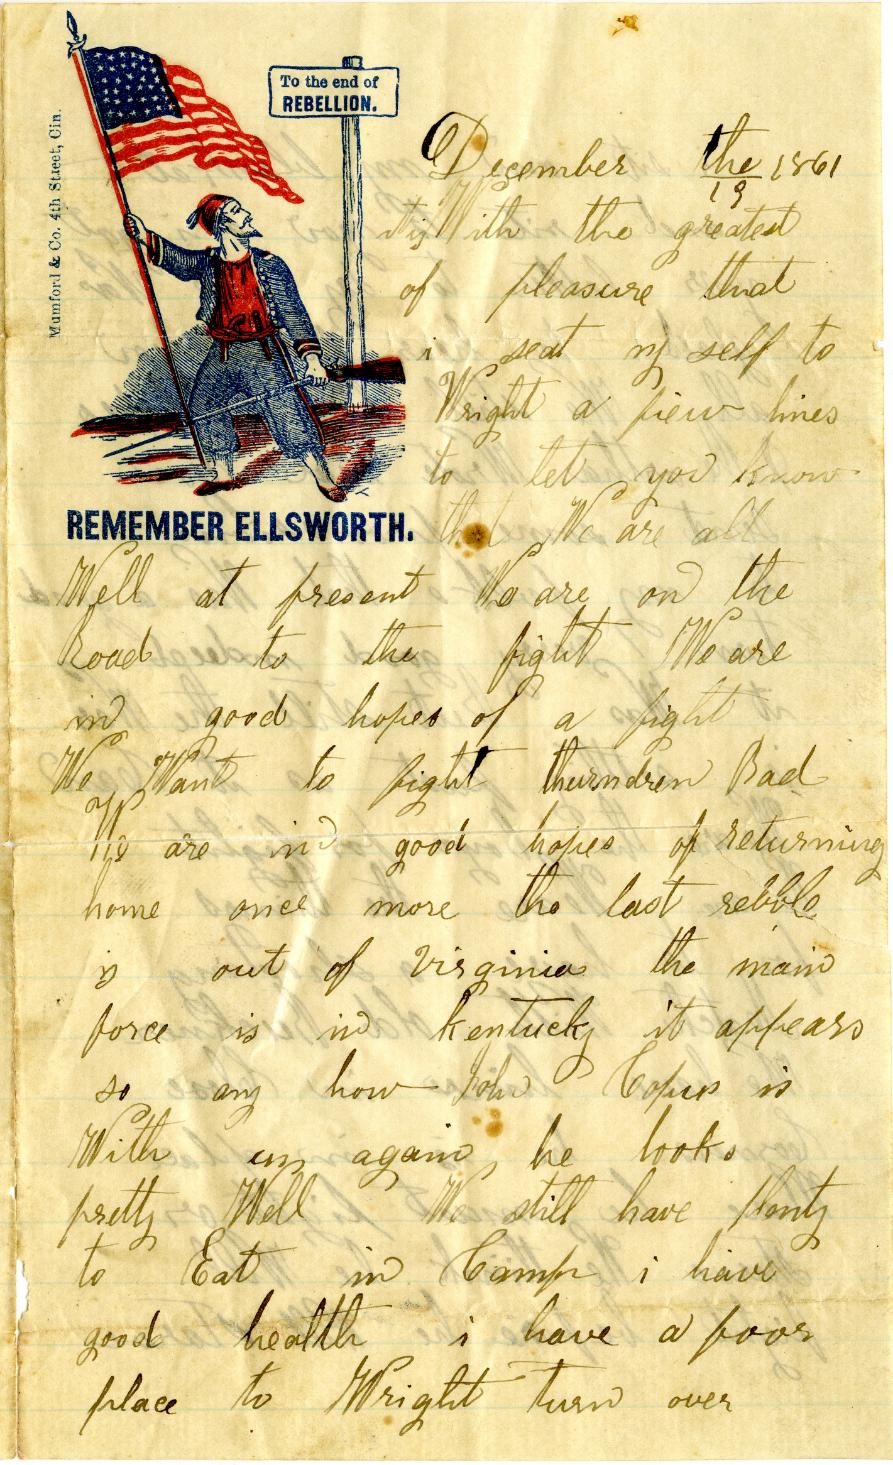 To the end of
REBELLION.
Mumford & Co. 4th Street, Cin.
REMEMBER ELLSWORTH.
December the 19 1861
it is With the greatest
of pleasure that
i seat my self to
Wright a fiew lines
to let you know
that We are all
Well at present We are on the
Road to the fight We are
in good hopes of a fight
We Want to fight Bad
We are in good hopes of returning
home once more the last rebble
is out of Virginia the main
force is in Kentucky it appears
so any how John Copus is
With us again he looks
pretty Well We still have plenty
to Eat in Camp i have
good health i have a poor
place to Wright turn over